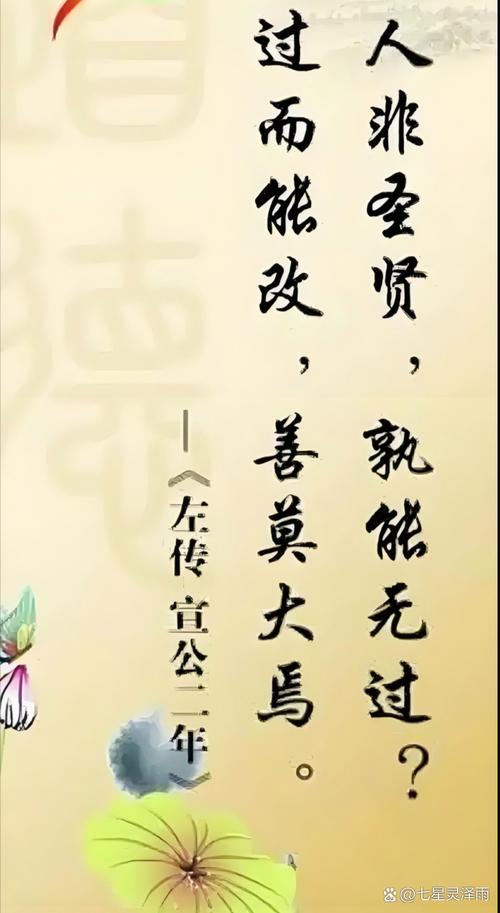 人非圣贤，孰能无过？
过而能改，善莫大焉。
—《左传 宣公二年》
道德
七星灵泽雨